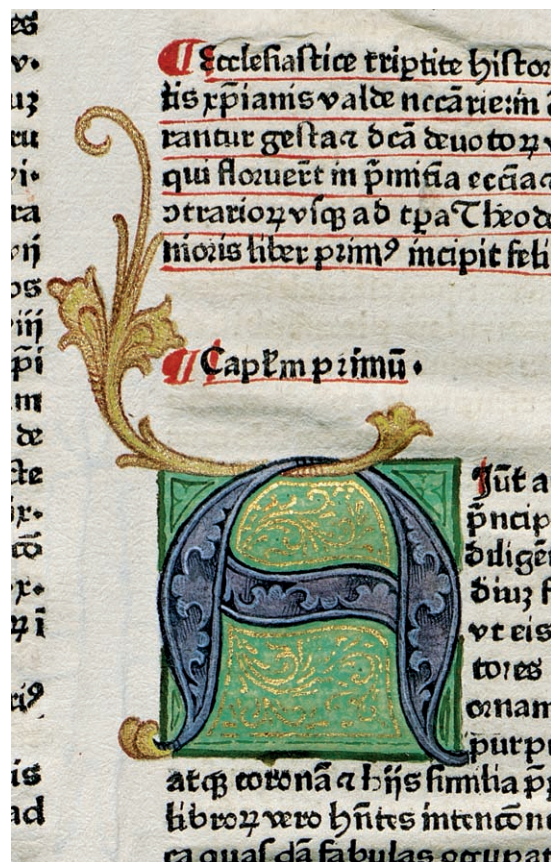 es
v.
uꝫ
ru
vi.
ra
vij
os
viij
p̄i
m
de
ste
ix.
cō
x.
ꝝ i
riꝰ
is
ad
¶ Ecclesiastice tripтite histor
tis xp̄ianis valde nccārie: in
rantur gesta ⁊ dcā deuotoꝝ v
qui floruer̄t in p̄mitīa ecc̄ia ⁊
ↄtrarioꝝ vsqꝫ ad tp̄a Theod
nioris liber primꝰ incipit feli
¶ Capl̄m primū .
A
Iūt a
p̄ncip
diligē
diuꝫ f
vt eis
tores
ornam
purpu
atqꝫ coronā ⁊ hijs similia p̄p
libroꝝ vero hn̄tes intencōne
ca quasdā fabulas occupat